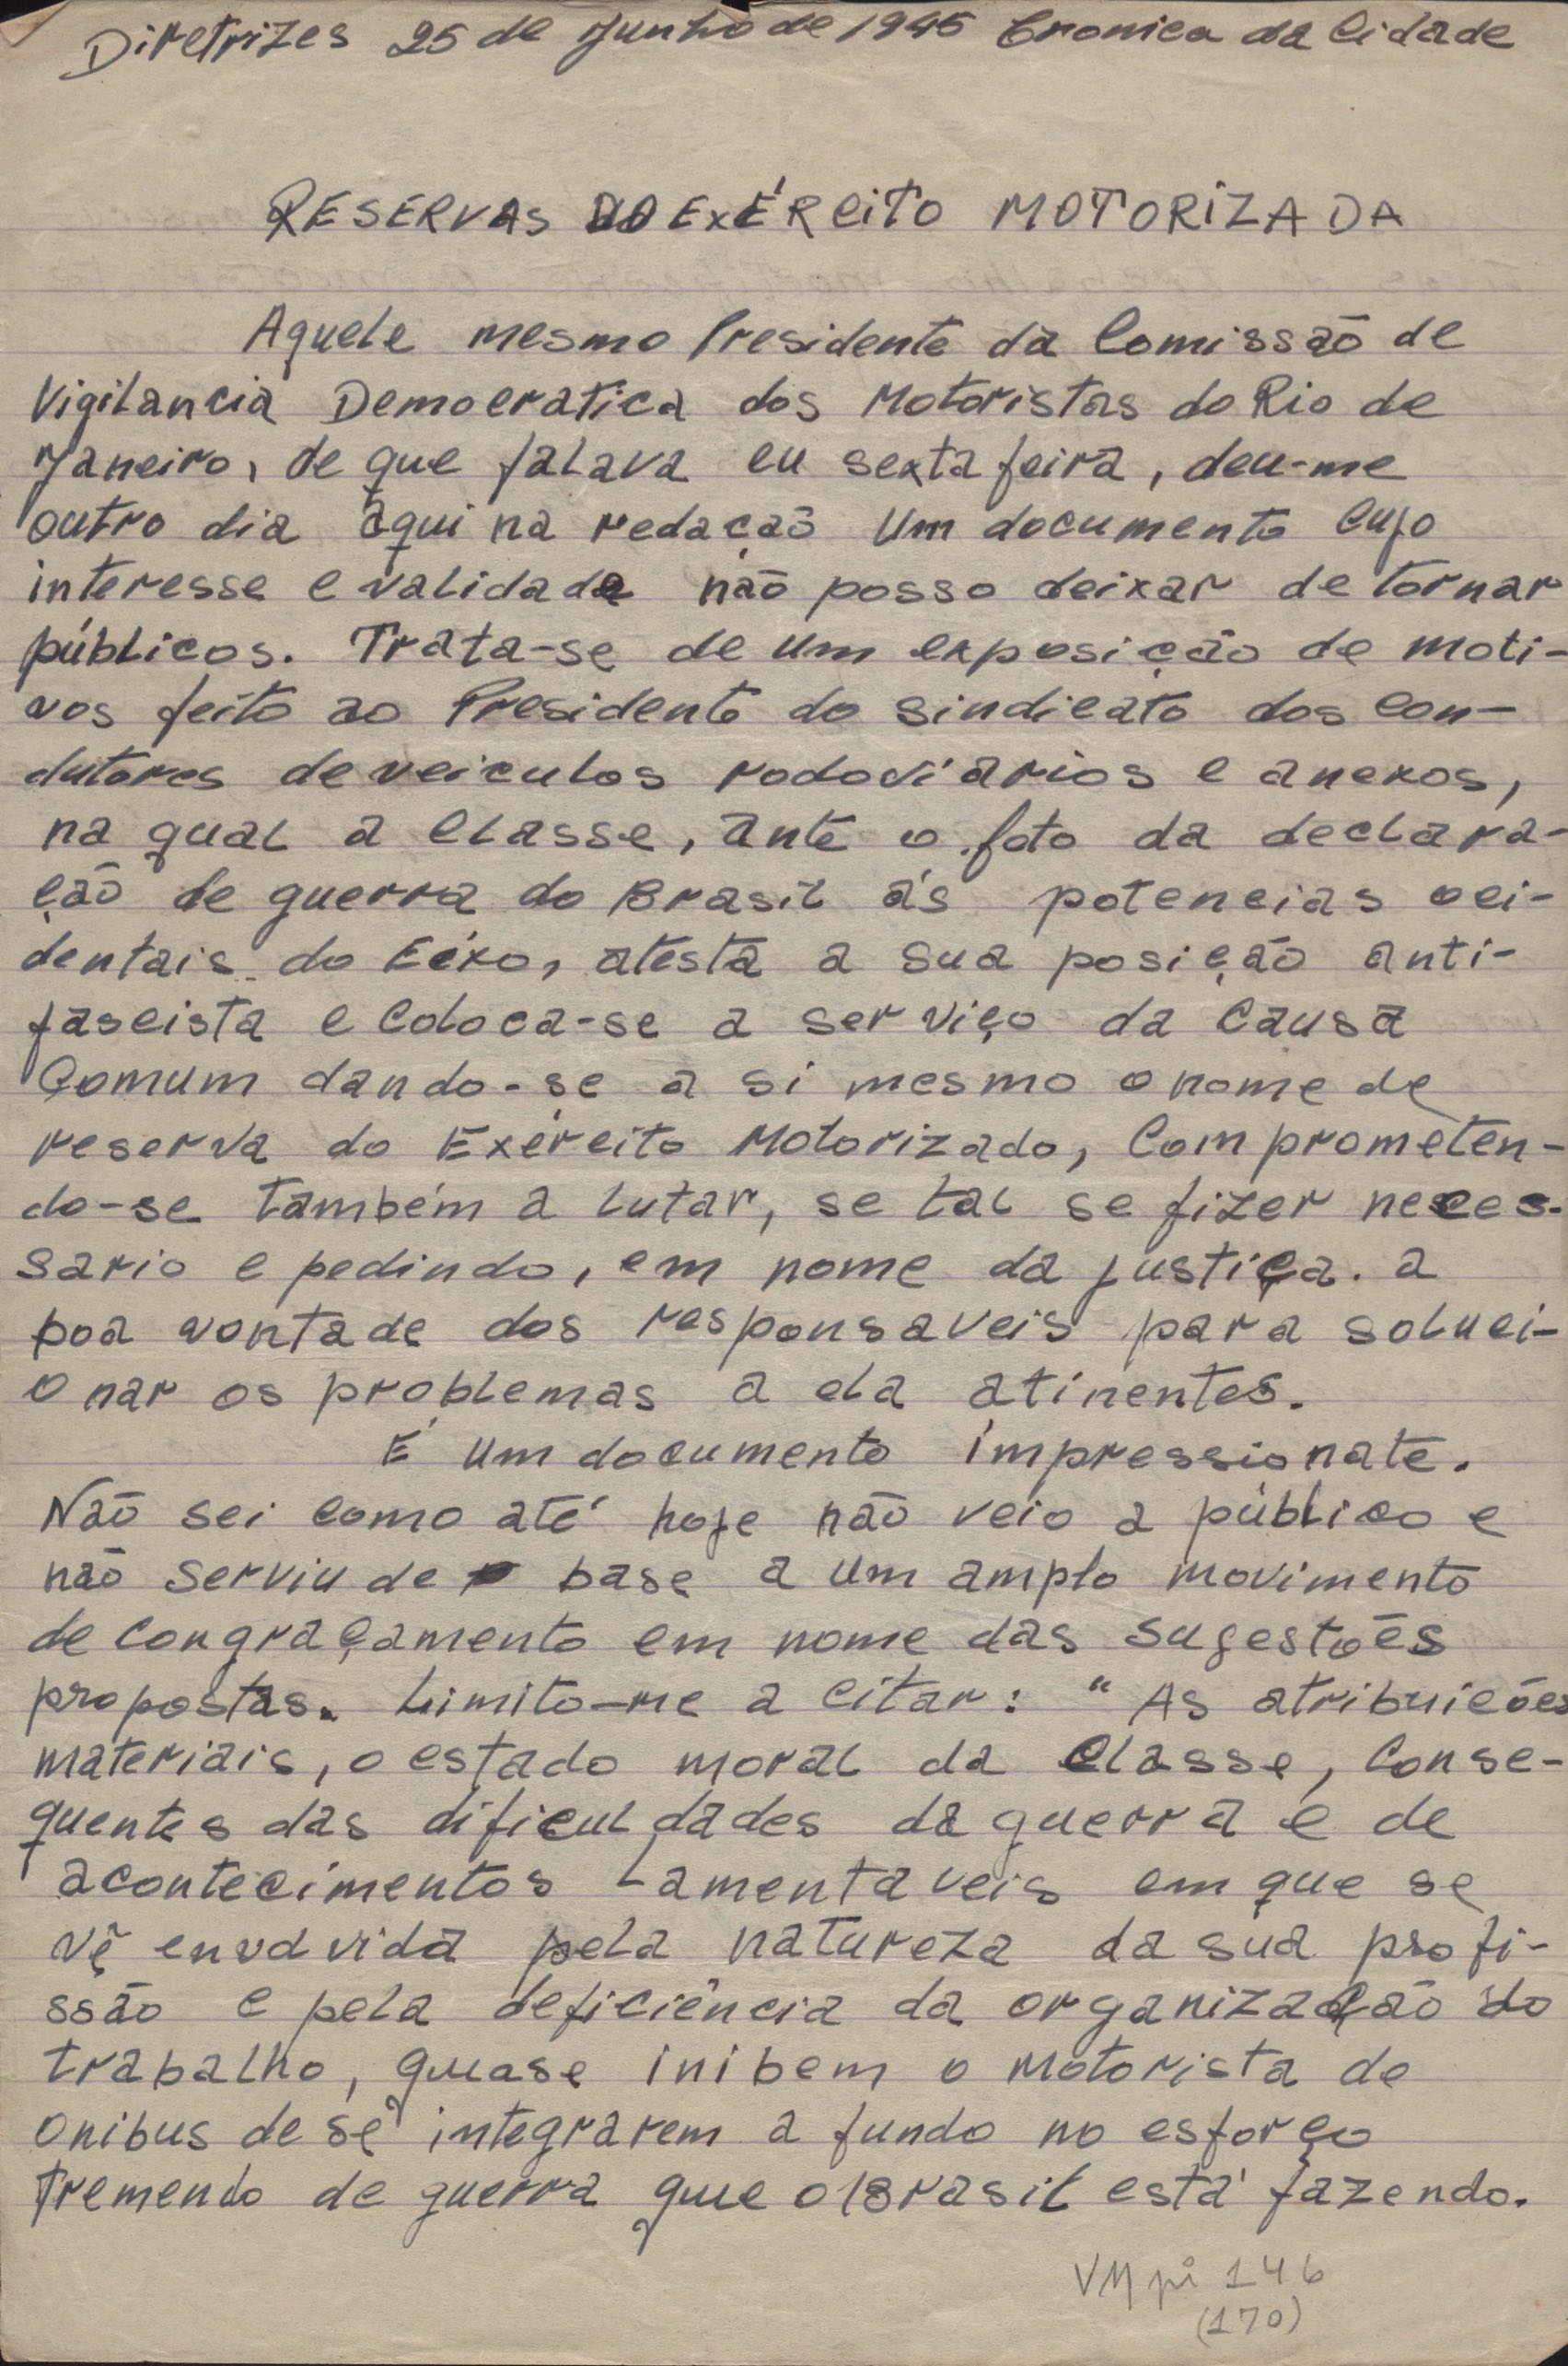 Diretrizes 25 de Junho de 1945 Cronica da Cidade
RESERVAS DO EXÉRCITO MOTORIZADA
Aquele mesmo Presidente da Comissão de
Vigilancia Democratica dos Motoristas do Rio de
Janeiro, de que falava eu sexta feira, deu-me
outro dia aqui na redação um documento cujo
interesse e validade não posso deixar de tornar
públicos. Trata-se de um exposição de moti-
vos feito ao Presidente do sindicato dos con-
dutores de veiculos rodoviarios e anexos,
na qual a classe, ante o foto da declara-
ção de guerra do Brasil ás potencias oci-
dentais do Eixo, atesta a sua posição anti-
fascista e coloca-se a serviço da causa
comum dando-se a si mesmo o nome de
reserva do Exército Motorizado, comprometen-
do-se também a lutar, se tal se fizer neces-
sario e pedindo, em nome da justiça. a
boa vontade dos responsaveis para soluci-
onar os problemas a ela atinentes.
É um documento impressionate.
Não sei como até hoje não veio a público e
não serviu de base a um amplo movimento
de congraçamento em nome das sugestões
propostas. Limito-me a citar: "As atribuições
materiais, o estado moral da classe, conse-
quentes das dificuldades da guerra e de
acontecimentos lamentaveis em que se
vê envolvida pela natureza da sua profi-
ssão e pela deficiência da organização do
trabalho, quase inibem o motorista de
onibus de se integrarem a fundo no esforço
tremendo de guerra que o Brasil está fazendo.
VM pi 146
(170)